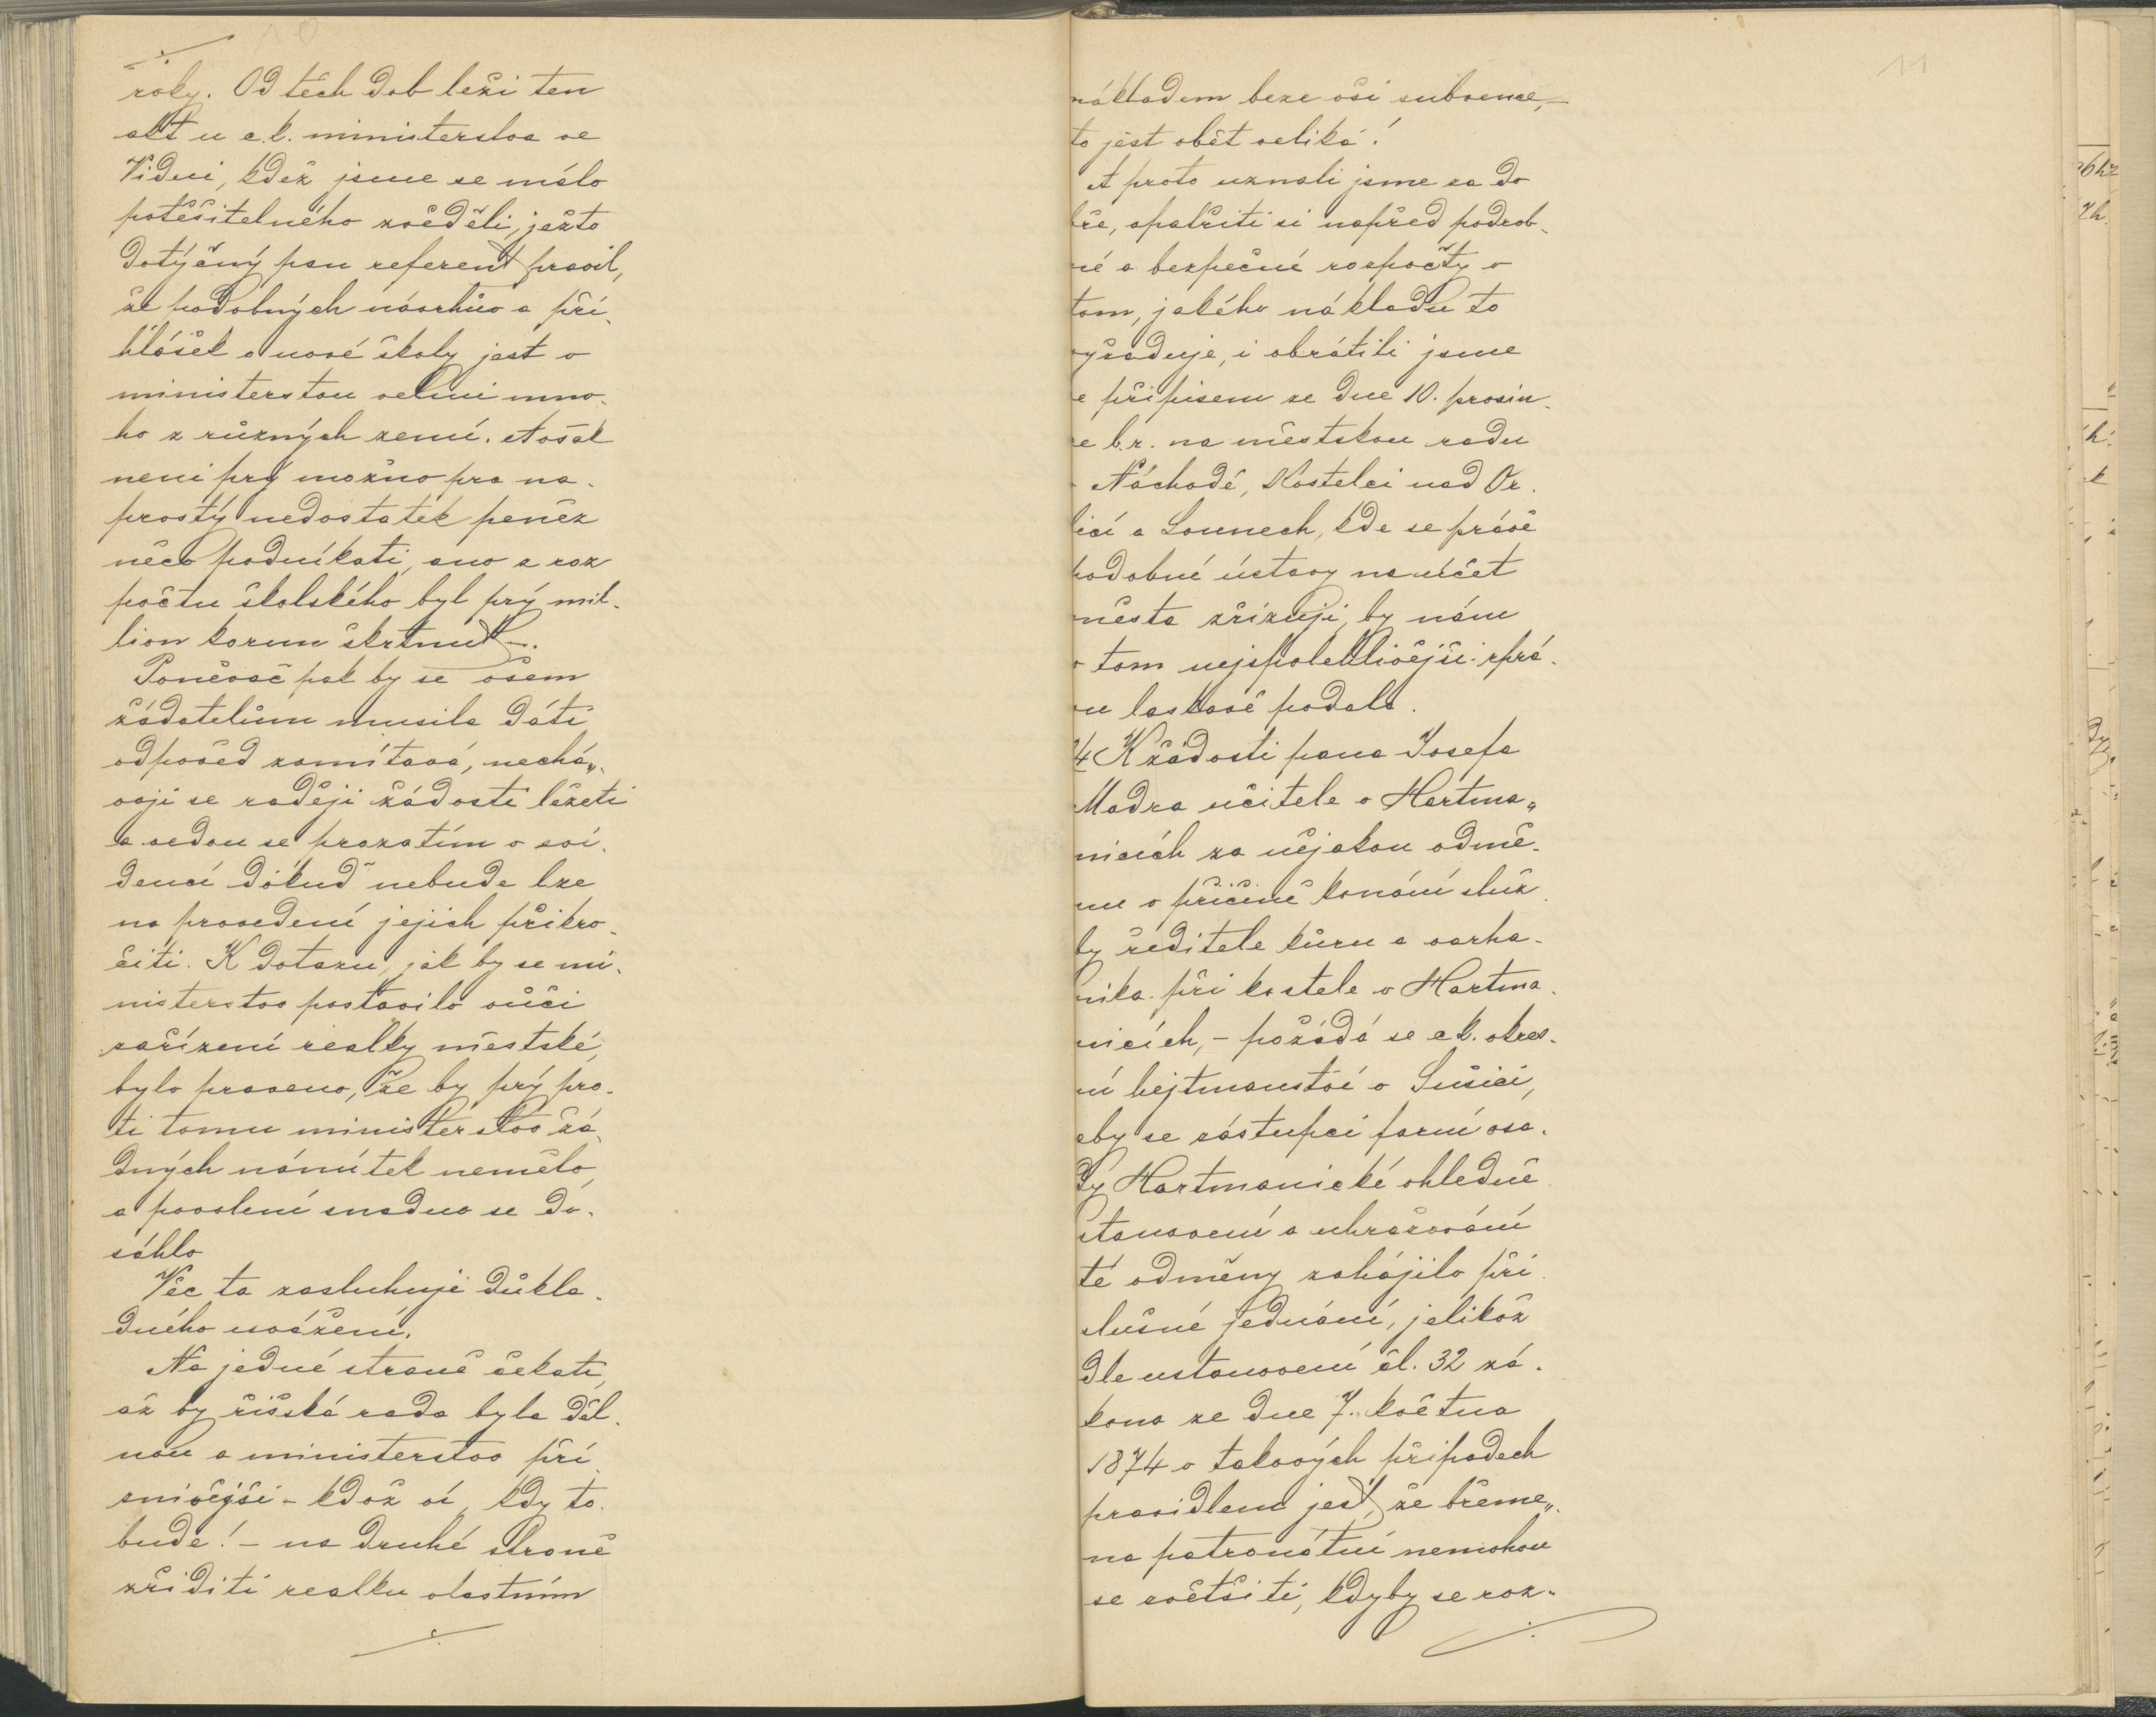 10
roky. Od těch dob leží ten
akt u c.k. ministerstva ve
Vídni, kdež jsme se málo
potěšitelného zvěděli, ježto
dotyčný pan referent pravil,
že podobných návrhův a při-
hlášek o nové školy jest v
ministerstvu velmi mno-
ho z různých zemí. Avšak
není prý možno pro na-
prostý nedostatek peněz
něco podnikati, ano z roz
počtu školského byl prý mil-
lion korun škrtnut –.
Poněvač pak by se všem
žádatelům musila dáti
odpověd zamítavá, nechá„
vají se raději žádosti ležeti
a vedou se prozatím v evi-
denci dokuď nebude lze
na provedení jejich přikro-
čiti. K dotazu, jak by se mi-
nisterstvo postavilo vůči
zařízení realky městské,
bylo praveno, že by prý pro-
ti tomu ministerstvo žá-
dných námitek nemělo,
a povolení snadno se do-
sáhlo
Věc ta zasluhuje důkla-
dného uvážení.
Na jedné straně čekati,
až by říšská rada byla děl-
nou a ministerstvo pří
znivější – kdož ví, kdy to
bude! – na druhé straně
zříditi realku vlastním
11
nákladem beze vší subvence, –
to jest oběť veliká!
A proto uznali jsme za do
bře, opatřiti si napřed podrob-
né a bezpečné rozpočty o
tom, jakého nákladu to
vyžaduje, i obrátili jsme
se přípisem ze dne 10. prosin-
ce b.r. na městskou radu
v Náchodě, Kostelci nad Or-
licí a Lounech, kde se právě
podobné ústavy na účet
města zřizují, by nám
o tom nejspolehlivější zprá-
vu laskavě podala.
4 K žádosti pana Josefa
Modra učitele v Hartma„
nicích za nějakou odmě-
nu v příčině konání služ
by ředitele kůru a varha-
níka při kostele v Hartma-
nicích, – požádá se c.k. okres-
ní hejtmanství v Sušici,
aby se zástupci farní osa-
dy Hartmanické ohledně
stanovení a uhražování
té odměny zahájilo pří
slušné jednání, jelikož
dle ustanovení čl. 32 zá-
kona ze dne 7. května
1874 v takových případech
pravidlem jest, že břeme„
na patronátní nemohou
se zvětšiti, kdyby se roz-